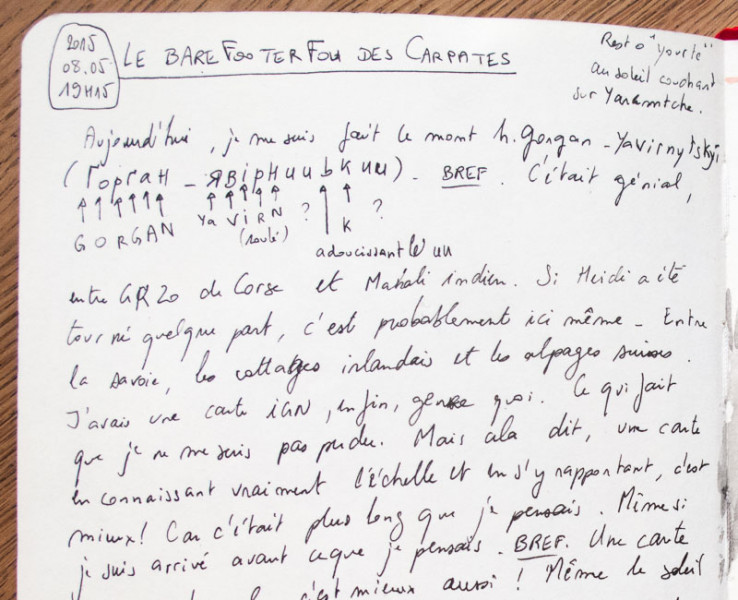 2015
08.05
19H15
LE BAREFOOTERFOU DES CARPATES
Resto "yourte"
au soleil couchant
sur Yaremtche.
Aujourd'hui, je me suis fait le mont h.Gorgan - Yavirnytskyi
(Горган - Явірницький). BREF. C'était génial,
GORGAN Ya ViRN ? K ?
(roulé)
adoucissant le
entre GR20 de Corse et Manali indien. Si Heidi a été
tourné quelque part, c'est probablement ici même - Entre
la Savoie, les cottages irlandais et les alpages suisses.
J'avais une carte IGN, enfin, genre quoi. Ce qui fait
que je ne me suis pas perdu. Mais cela dit, une carte
en connaissant vraiment l'échelle et en s'y rapportant, c'est
mieux! Car c'était plus long que je pensais. Même si
je suis arrivé avant ce que je pensais. BREF. Une carte
c'est mieux aussi ! Même le soleil